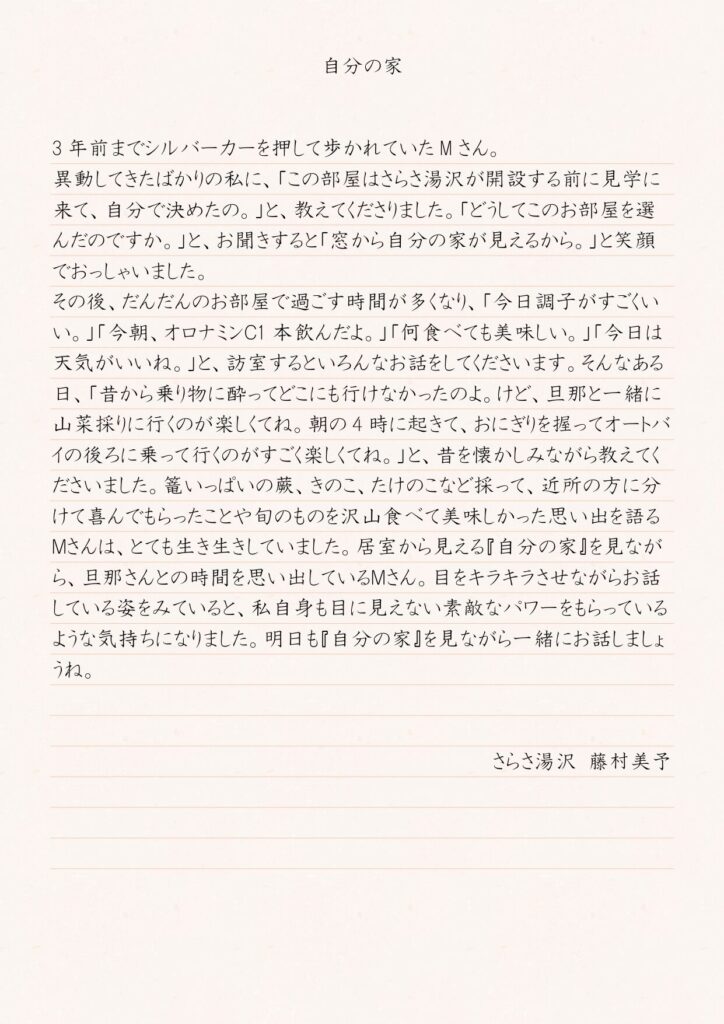 自分の家
3年前までシルバーカーを押して歩かれていたMさん。
異動してきたばかりの私に、「この部屋はさらさ湯沢が開設する前に見学に
来て、自分で決めたの。」と、教えてくださりました。「どうしてこのお部屋を選
んだのですか。」と、お聞きすると「窓から自分の家が見えるから。」と笑顔
でおっしゃいました。
その後、だんだんのお部屋で過ごす時間が多くなり、「今日調子がすごくい
い。」「今朝、オロナミンC1本飲んだよ。」「何食べても美味しい。」「今日は
天気がいいね。」と、訪室するといろんなお話をしてくださいます。そんなある
日、「昔から乗り物に酔ってどこにも行けなかったのよ。けど、旦那と一緒に
山菜採りに行くのが楽しくてね。朝の4時に起きて、おにぎりを握ってオートバ
イの後ろに乗って行くのがすごく楽しくてね。」と、昔を懐かしみながら教えてく
ださいました。篭いっぱいの蕨、きのこ、たけのこなど採って、近所の方に分
けて喜んでもらったことや旬のものを沢山食べて美味しかった思い出を語る
Mさんは、とても生き生きしていました。居室から見える『自分の家』を見なが
ら、旦那さんとの時間を思い出しているMさん。目をキラキラさせながらお話
している姿をみていると、私自身も目に見えない素敵なパワーをもらっている
ような気持ちになりました。明日も『自分の家』を見ながら一緒にお話しましょ
うね。
さらさ湯沢 藤村美予